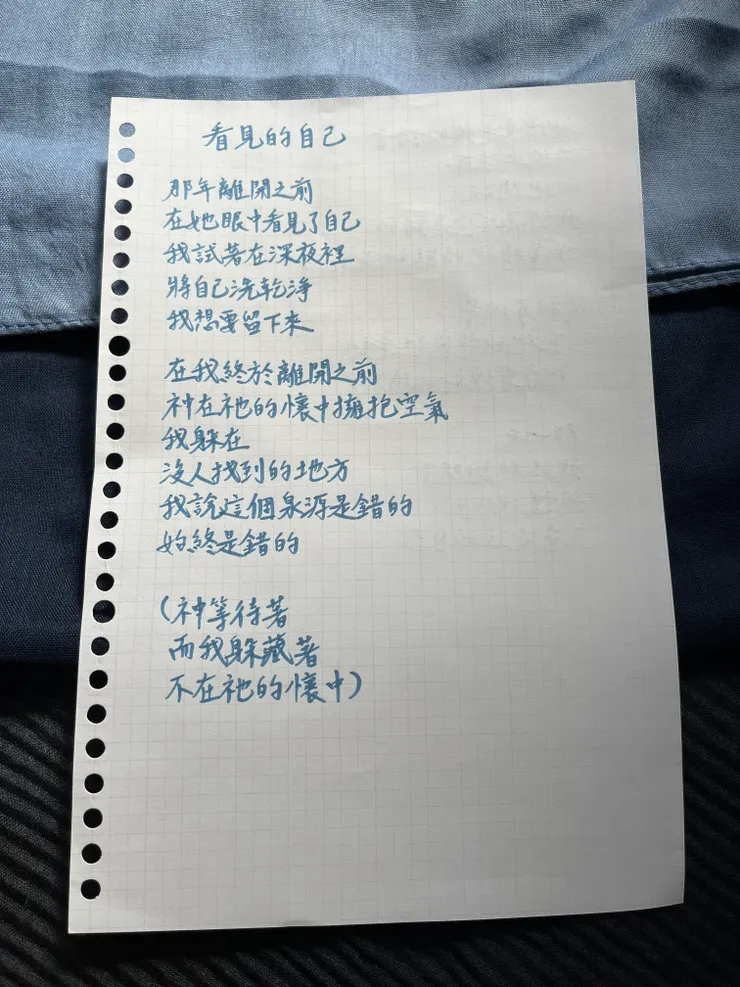 看見的自己
那年離開之前
在她眼中看見了自己
我試著在深夜裡
將自己洗乾淨
我想要留下來
在我終於離開之前
神在祂的懷中擁抱空氣
我躲在
沒人找到的地方
我說這個泉源是錯的
始終是錯的
(神等待著
而我躲藏著
不在祂的懷中)